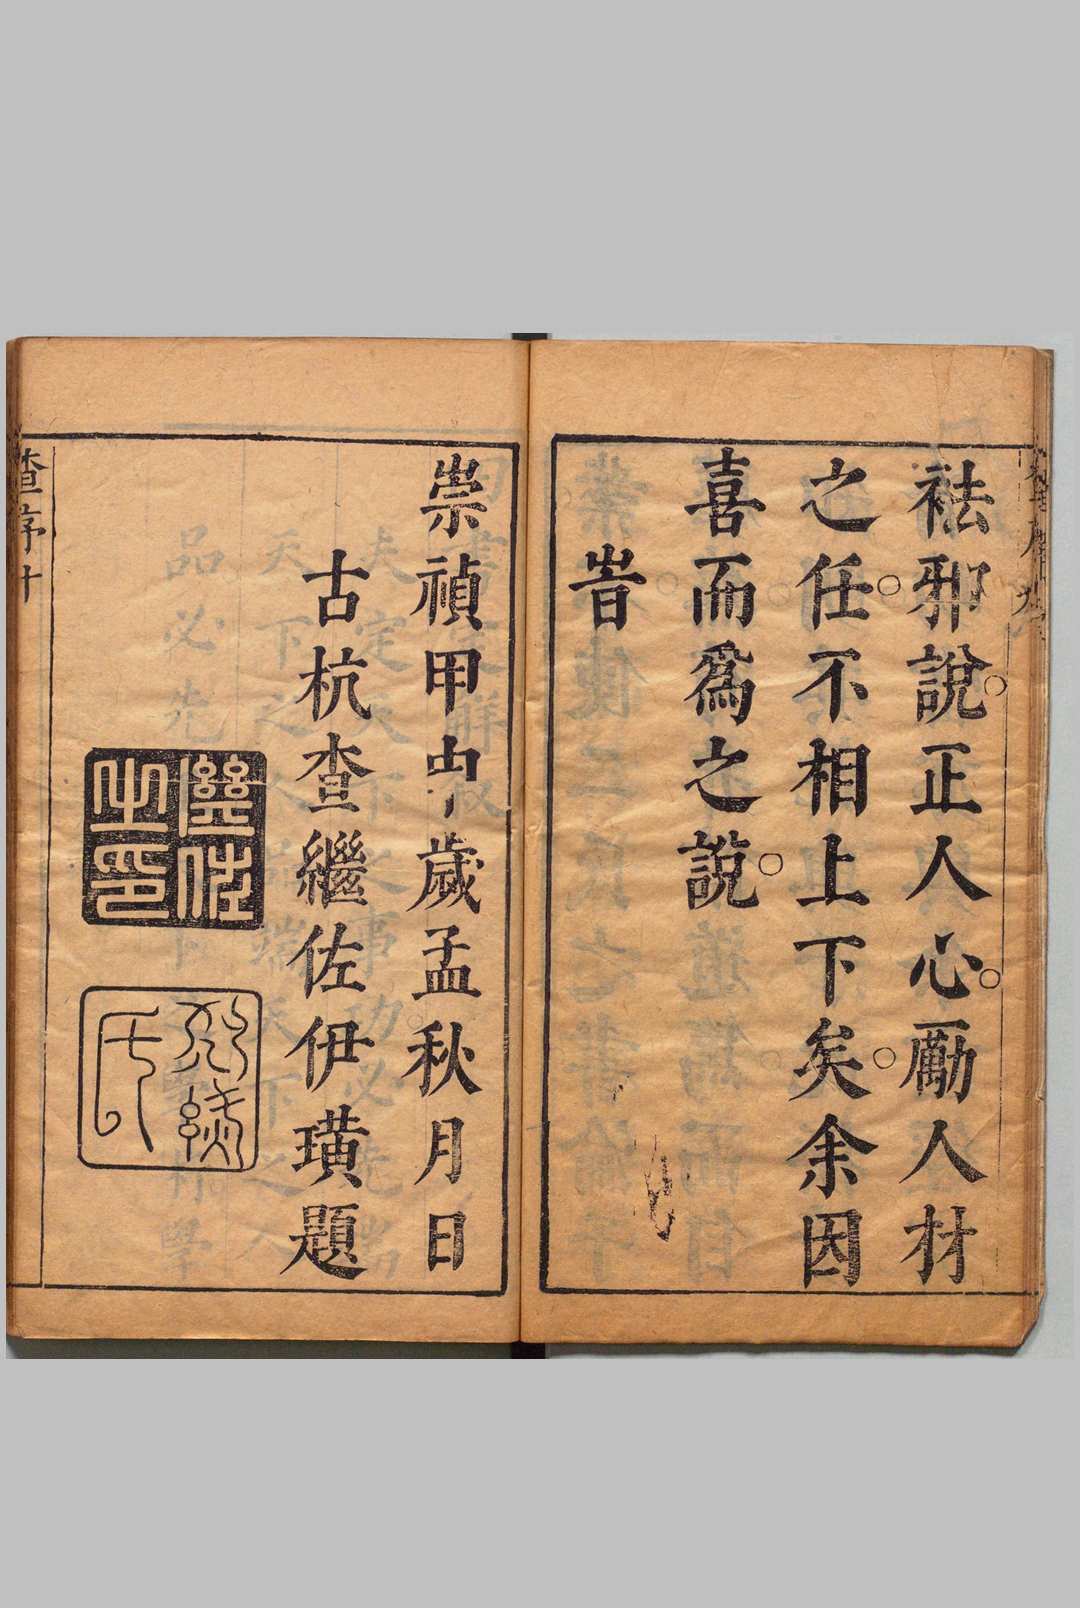 祛邪說正人心勵人材
之任不相上下矣余因
喜而為之說
旹
崇禎甲申歲孟秋月日
古杭查繼佐伊璜題
繼佐之印
查序十